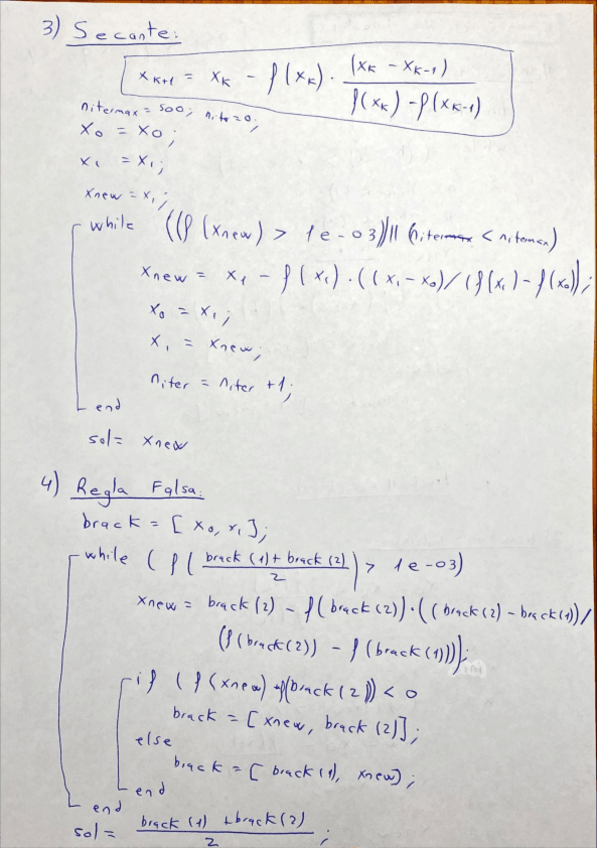 3) Secante:
x_{k+1} = x_k - f(x_k) · (x_k - x_{k-1}) / f(x_k) - f(x_{k-1})
nitermax = 500; niter=0;
x_0 = x_0;
x_1 = x_1;
xnew = x_1;
while ((f(xnew) > 1e-03) || (niter < nitermax)
xnew = x_1 - f(x_1) · ((x_1 - x_0)/(f(x_1) - f(x_0));
x_0 = x_1;
x_1 = xnew;
niter = niter +1;
end
sol = xnew
4) Regla Falsa:
brack = [x_0, x_1];
while (f(brack(1) + brack(2) / 2) > 1e-03)
xnew = brack(2) - f(brack(2)) · ((brack(2) - brack(1))/
(f(brack(2)) - f(brack(1)));
if (f(xnew) * f(brack(2))) < 0
brack = [xnew, brack(2)];
else
brack = [brack(1), xnew];
end
end
sol = brack(1) + brack(2) / 2 ;